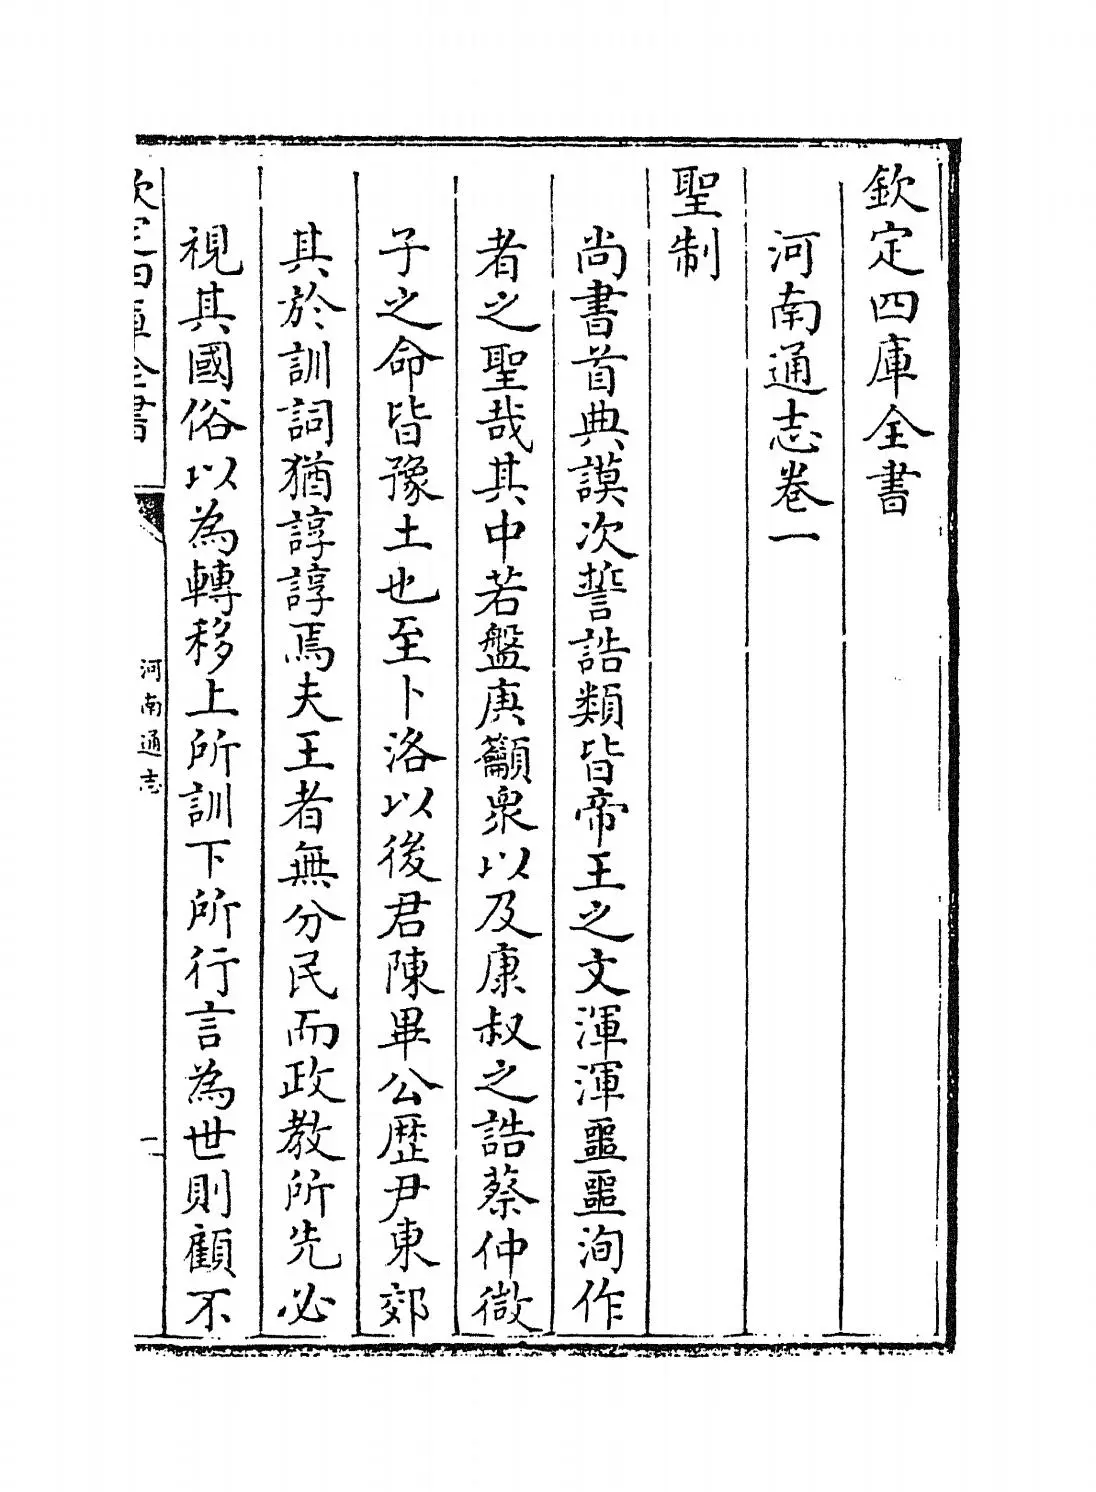 欽定四庫全書
河南通志卷一
聖制
尚書首典謨次誓誥類皆帝王之文渾渾噩噩洵作
者之聖哉其中若盤庚籲衆以及康叔之誥蔡仲微
子之命皆豫土也至卜洛以後君陳畢公歷尹東郊
其於訓詞猶諄諄焉夫王者無分民而政教所先必
視其國俗以為轉移上所訓下所行言為世則顧不
欽定四庫全書
河南通志
一